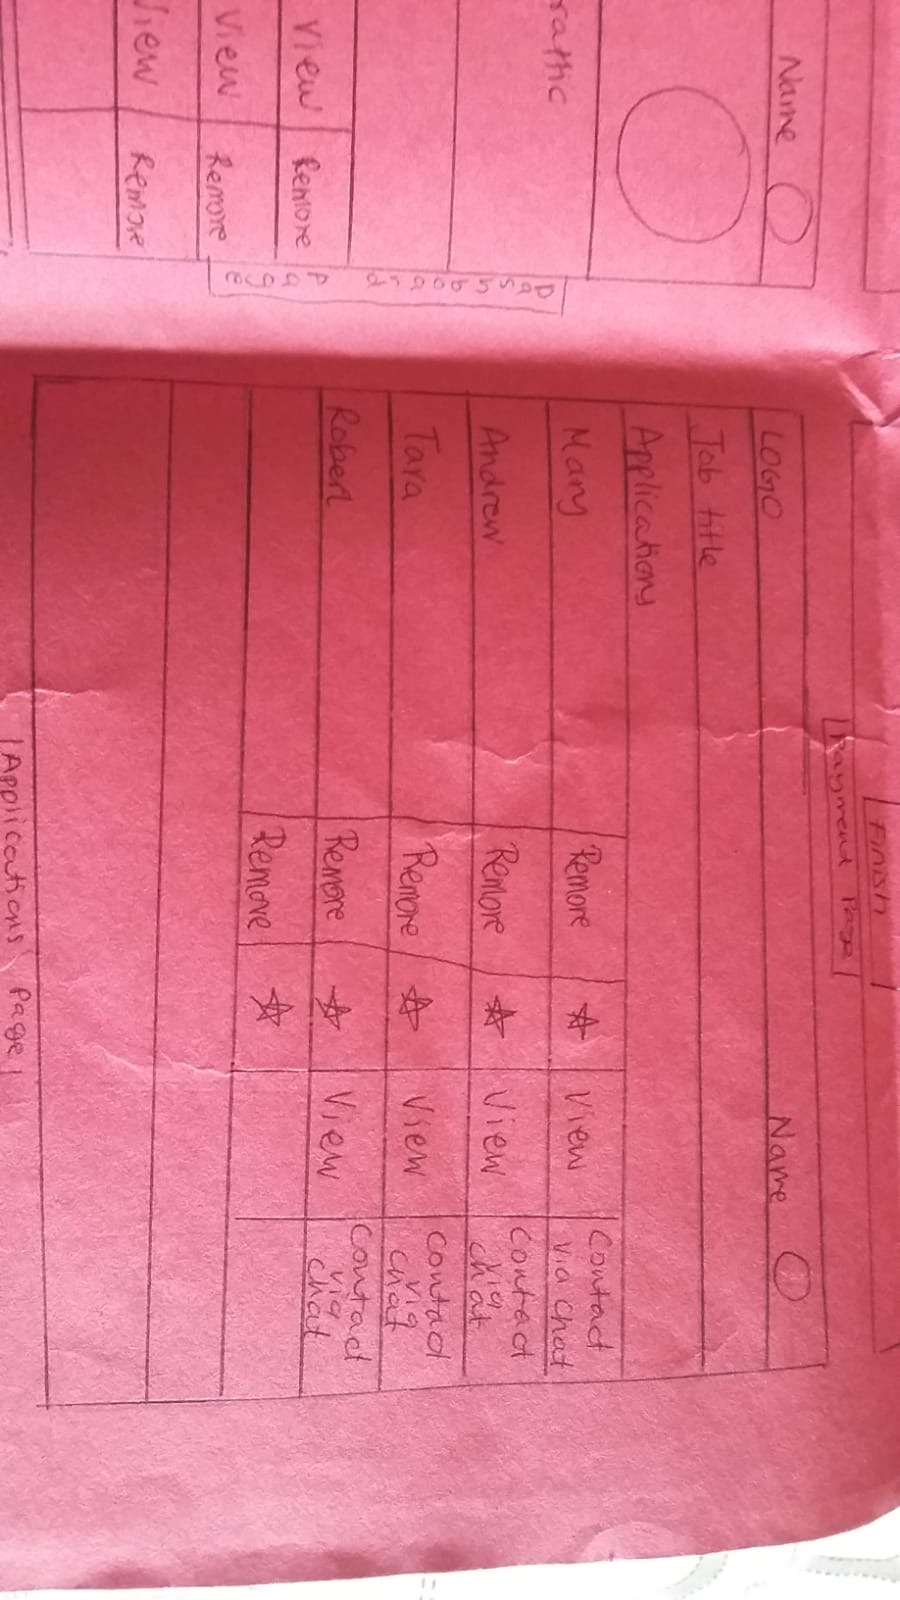 Finish
Payment Page
Name
raffic
Dashboard Page
View Remove
View Remove
View Remove
LOGO Name
Job title
Applications
Mary Remove View Contact via chat
Andrew Remove View Contact via chat
Tara Remove View Contact via chat
Robert Remove View Contact via chat
Remove
Applications Page